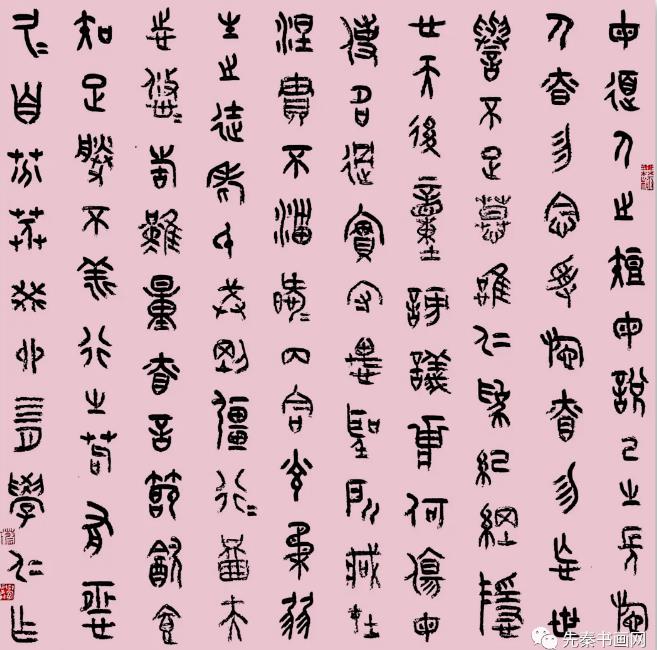 毋道人之短毋說己之長施
人慎勿念受施慎勿忘世
譽不足慕唯仁為紀綱隱
心而後動謗議庸何傷毋
使名過實守愚聖所臧在
涅貴不淄曖=內含光柔弱
生之徒老氏誡剛彊行=鄙夫
志悠=故難量慎言節飲食
知足勝不祥行之苟有恆
久=自芬芳癸卯三月學仁作
先秦书画网